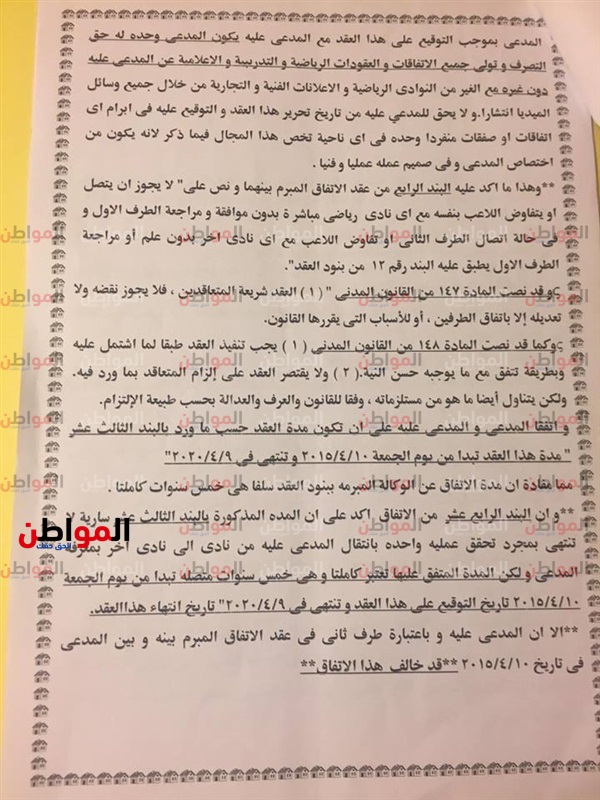 المدعى بموجب التوقيع على هذا العقد مع المدعى عليه يكون المدعى وحده له حق
التصرف و تولى جميع الاتفاقات و العقودات الرياضية و التدريبية و الاعلامية عن المدعى عليه
دون غيره مع الغير من النوادى الرياضية و الاعلانات الفنية و التجارية من خلال جميع وسائل
الميديا انتشارا.و لا يحق للمدعي عليه من تاريخ تحرير هذا العقد و التوقيع عليه فى ابرام اى
اتفاقات او صفقات منفردا وحده فى اى ناحية تخص هذا المجال فيما ذكر لانه يكون من
اختصاص المدعى و فى صميم عمله عمليا و فنيا .
**وهذا ما اكد عليه البند الرابع من عقد الاتفاق المبرم بينهما و نص على" لا يجوز ان يتصل
او يتفاوض اللاعب بنفسه مع اى نادى رياضي مباشرة بدون موافقة و مراجعة الطرف الاول و
فى حالة اتصال الطرف الثانى او تفاوض اللاعب مع اى نادى اخر بدون علم أو مراجعة
الطرف الاول يطبق عليه البند رقم ١٢ من بنود العقد".
وقد نصت المادة ١٤٧ من القانون المدنى " ( ١ ) العقد شريعة المتعاقدين ، فلا يجوز نقضه ولا
تعديله إلا باتفاق الطرفين ، أو للأسباب التى يقررها القانون.
وكما قد نصت المادة ١٤٨ من القانون المدنى ( ١ ) يجب تنفيذ العقد طبقا لما اشتمل عليه
وبطريقة تتفق مع ما يوجبه حسن النية.( ٢ ) ولا يقتصر العقد على إلزام المتعاقد بما ورد فيه.
ولكن يتناول أيضا ما هو من مستلزماته ، وفقا للقانون والعرف والعدالة بحسب طبيعة الإلتزام.
و اتفقا المدعى و المدعى عليه على ان تكون مدة العقد حسب ما ورد بالبند الثالث عشر
" مدة هذا العقد تبدا من يوم الجمعة ٢٠١٥/٤/١٠ و تنتهى فى ٢٠٢٠/٤/٩"
مما مفادة ان مدة الاتفاق عن الوكالة المبرمه ببنود العقد سلفا هى خمس سنوات كاملتا .
**و ان البند الرابع عشر من الاتفاق اكد على ان المده المذكورة بالبند الثالث عشر سارية لا
تنتهى بمجرد تحقق عمليه واحده بانتقال المدعى عليه من نادى الى نادى اخر بمعرفة
المدعى و لكن المدة المتفق عليها تعتبر كاملتا و هى خمس سنوات متصله تبدا من يوم الجمعة
٢٠١٥/٤/١٠ تاريخ التوقيع على هذا العقد و تنتهى فى ٢٠٢٠/٤/٩" تاريخ انتهاء هذاالعقد.
**الا ان المدعى عليه و باعتبارة طرف ثانى فى عقد الاتفاق المبرم بينه و بين المدعى
فى تاريخ ٢٠١٥/٤/١٠ **قد خالف هذا الاتفاق**
المواطن